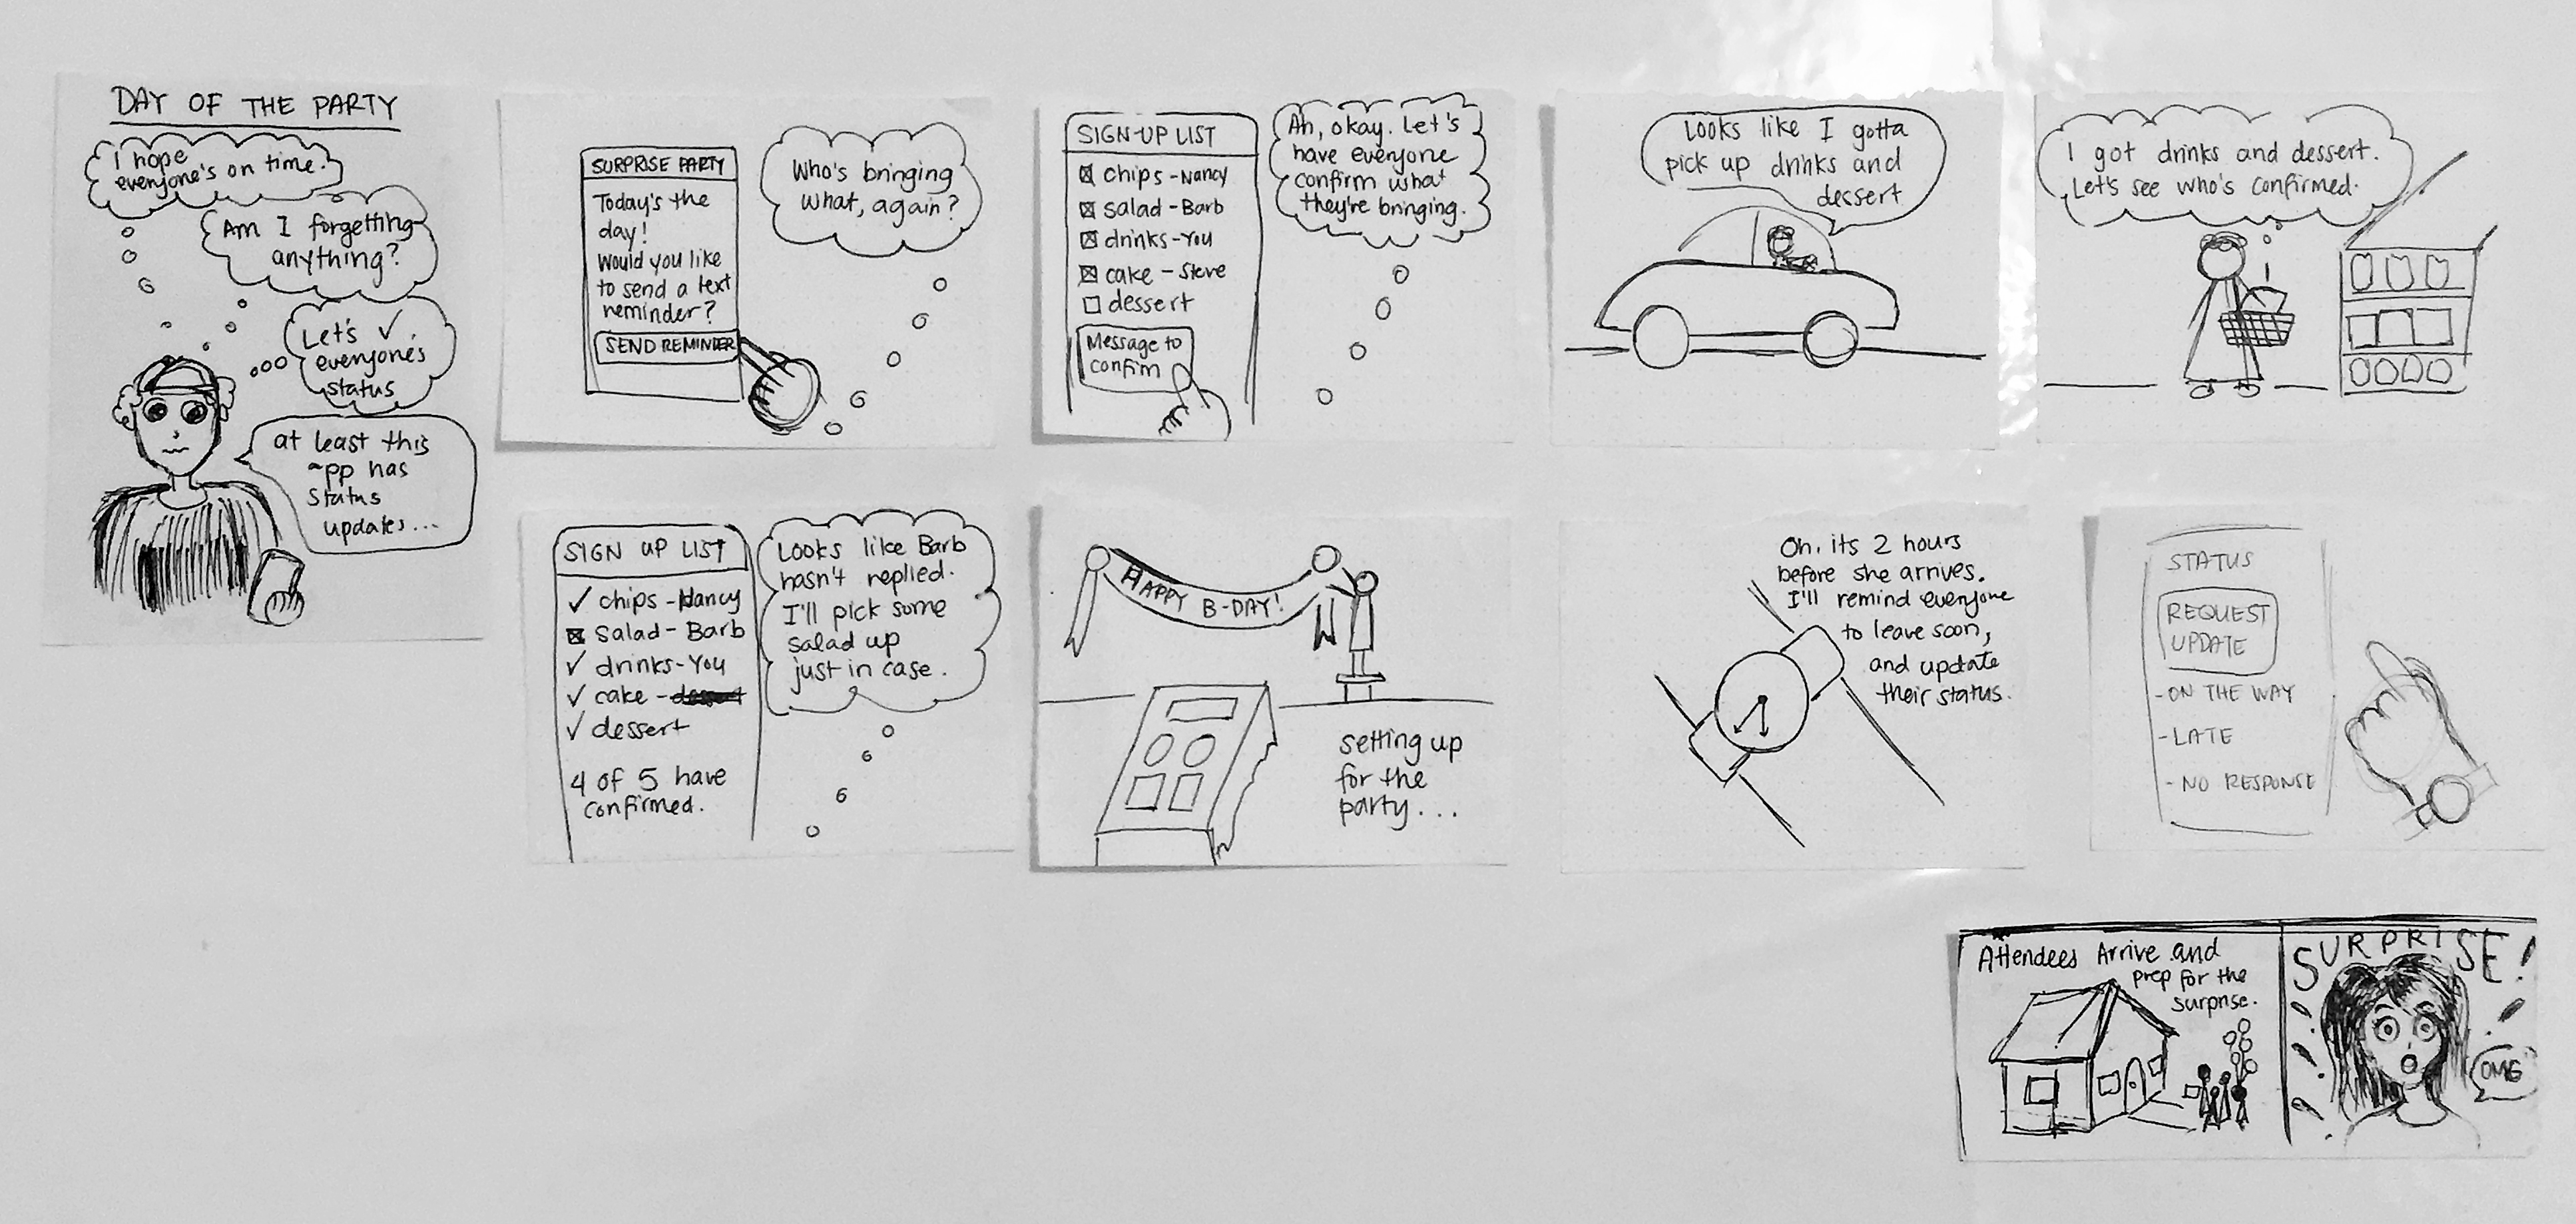 DAY OF THE PARTY
I hope
everyone's on time.
Am I forgetting
anything?
Let's ✓
everyone's
status
at least this
~pp has
status
updates...
SURPRISE PARTY
Today's the
day!
Would you like
to send a text
reminder?
SEND REMINDER
Who's bringing
what, again?
SIGN-UP LIST
☒ chips - Nancy
☒ salad - Barb
☒ drinks - You
☒ cake - Steve
☐ dessert
Message to
confirm
Ah, okay. Let's
have everyone
confirm what
they're bringing.
Looks like I gotta
pick up drinks and
dessert
I got drinks and dessert.
Let's see who's confirmed.
SIGN UP LIST
✓ chips - Nancy
☒ salad - Barb
✓ drinks - You
✓ cake -
✓ dessert
4 of 5 have
confirmed.
Looks like Barb
hasn't replied.
I'll pick some
salad up
just in case.
HAPPY B-DAY!
setting up
for the
party...
Oh, its 2 hours
before she arrives.
I'll remind everyone
to leave soon,
and update
their status.
STATUS
REQUEST
UPDATE
- ON THE WAY
- LATE
- NO RESPONSE
Attendees Arrive and
prep for the
surprise.
SURPRISE!
OMG